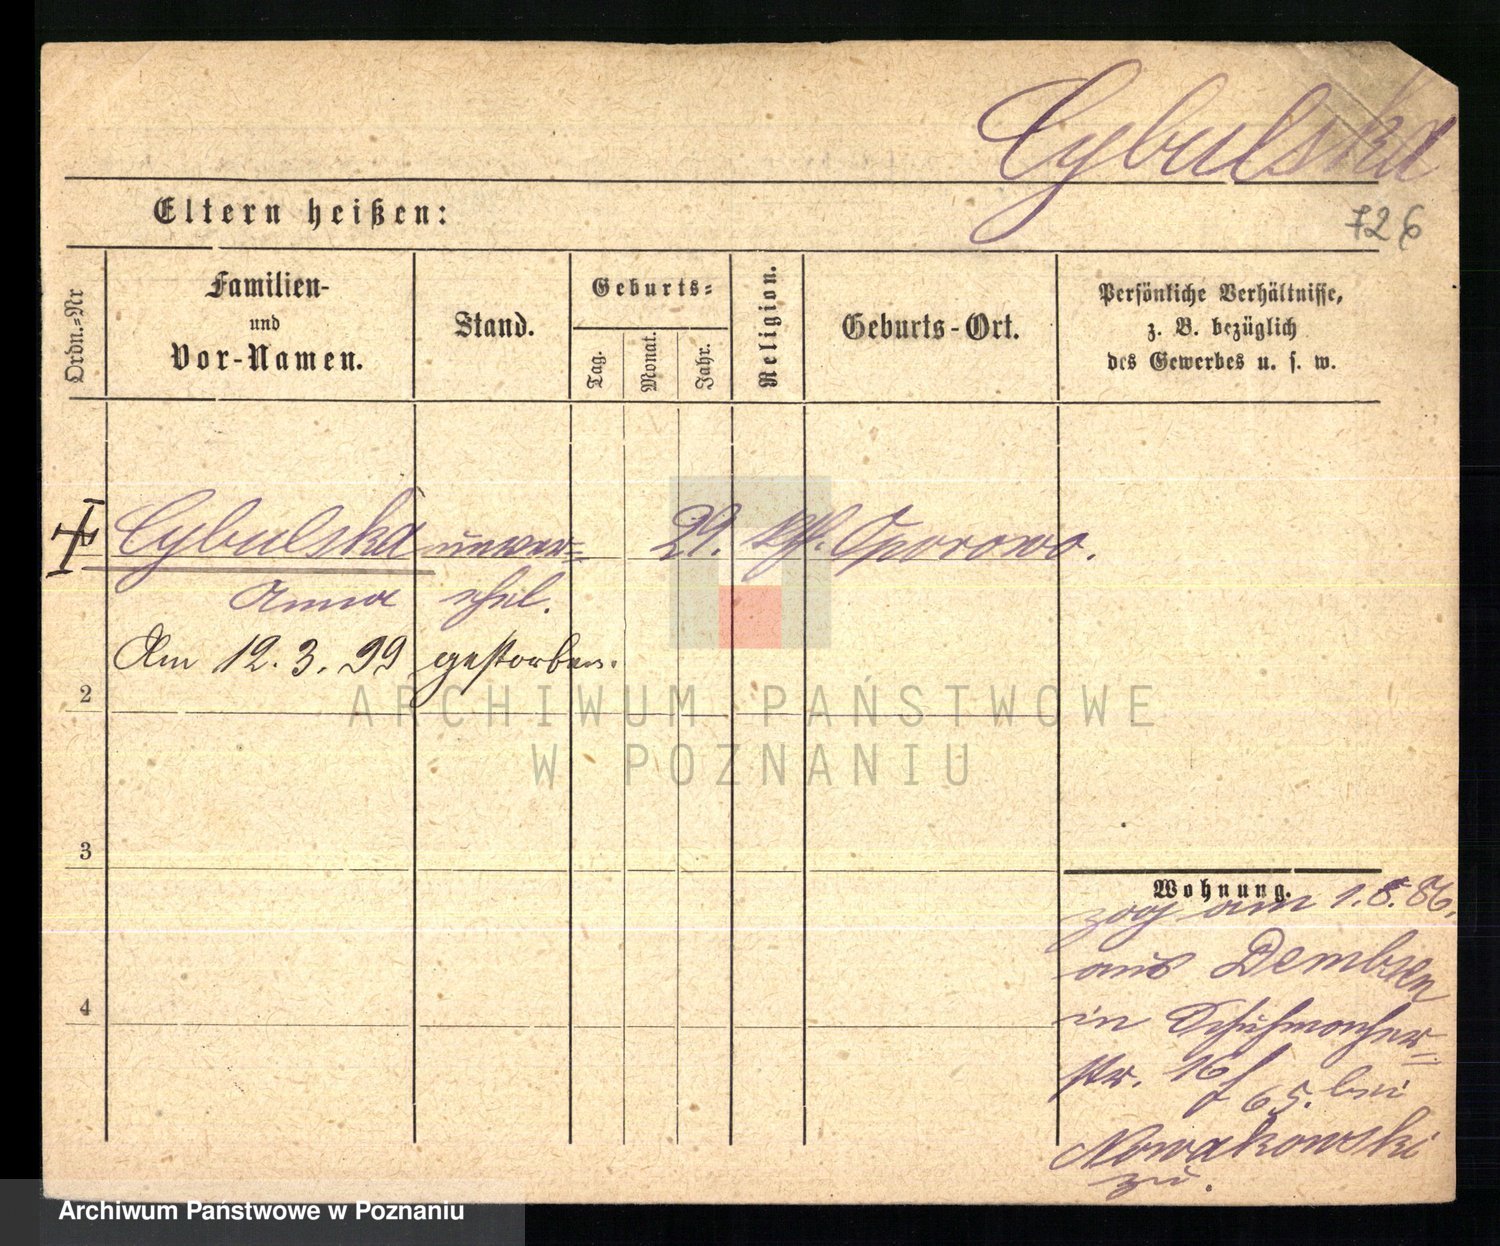 Cybulska
726
Eltern heißen:
Ordn.=Nr
Familien-
und
Vor-Namen.
Stand.
Geburts=
Tag.
Monat.
Jahr.
Religion.
Geburts-Ort.
Persönliche Verhältnisse,
z. B. bezüglich
des Gewerbes u. s. w.
Cybulska unver= 29. kth. Oporowo.
Anna ehel.
Am 12. 3. 99 gestorben.
2
3
4
Wohnung.
zog am 1. 8. 86.
aus Dembsen
in Schuhmacher=
str. 16 65. bei
Nowakowski
zu.
ARCHIWUM PAŃSTWOWE
W POZNANIU
Archiwum Państwowe w Poznaniu